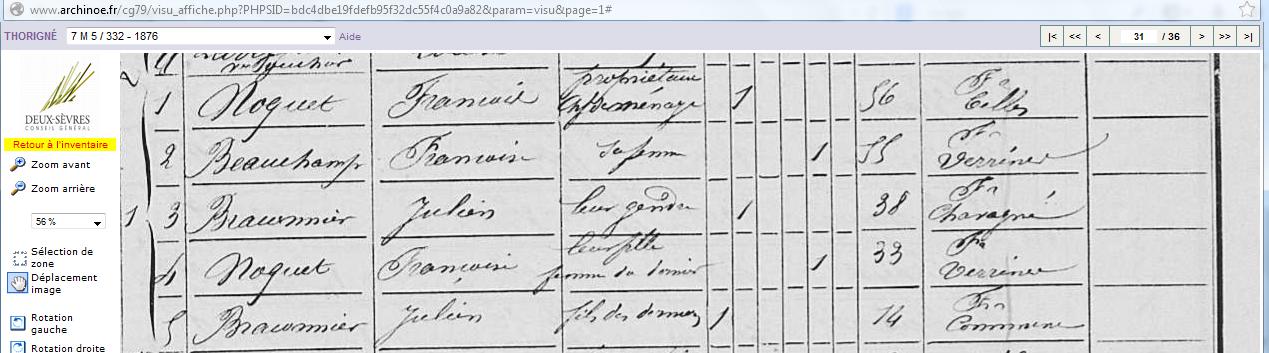 www.archinoe.fr/cg79/visu_affiche.php?PHPSID=bdc4dbe19fdefb95f32dc55f4c0a9a82&param=visu&page=1#
THORIGNÉ 7 M 5 / 332 - 1876 Aide |< << < 31 / 36 > >> >|
DEUX-SÈVRES
CONSEIL GÉNÉRAL
Retour à l'inventaire
Zoom avant
Zoom arrière
56 %
Sélection de
zone
Déplacement
image
Rotation
gauche
Rotation droite
propriétaire Fr
1 Noquet Francois chf de ménage 1 56 Celles
Fr
2 Beauchamp Francoise sa femme 1 55 Verrines
Fr
1 3 Braconnier Julien leur gendre 1 38 Chavagné
leur fille Fr
4 Noquet Francoise femme du dernier 1 33 Verrines
Fr
5 Braconnier Julien fils des derniers 1 14 Commune